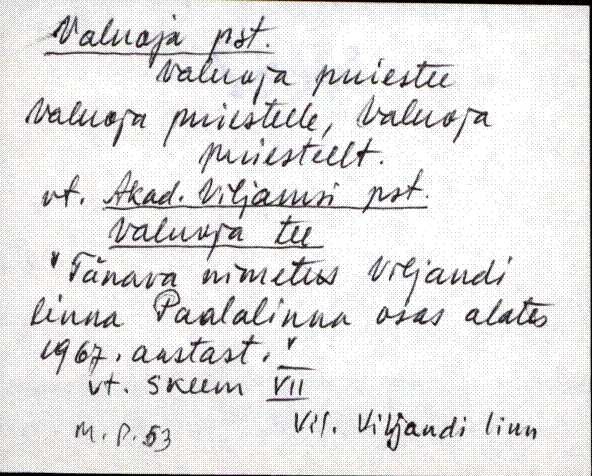 Valuoja pst.
Valuoja puiestee
Valuoja puiesteele, Valuoja
puiesteelt.
vt. Akad. Viljamsi pst.
Valuoja tee
"Tänava nimetus Viljandi
linna Paalalinna osas alates
1967. aastast."
vt. skeem VII
M. P. 53
Vil. Viljandi linn